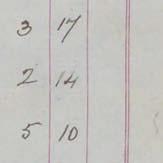 3 17
2 14
5 10